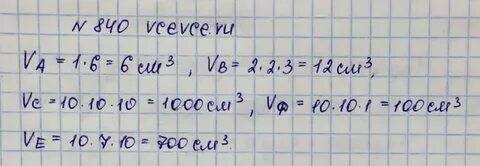 N 840 vcevce.ru
VA = 1·6 = 6 см³, VB = 2·2·3 = 12 см³,
VC = 10·10·10 = 1000 см³, VФ = 10·10·1 = 100 см³
VE = 10·7·10 = 700 см³.